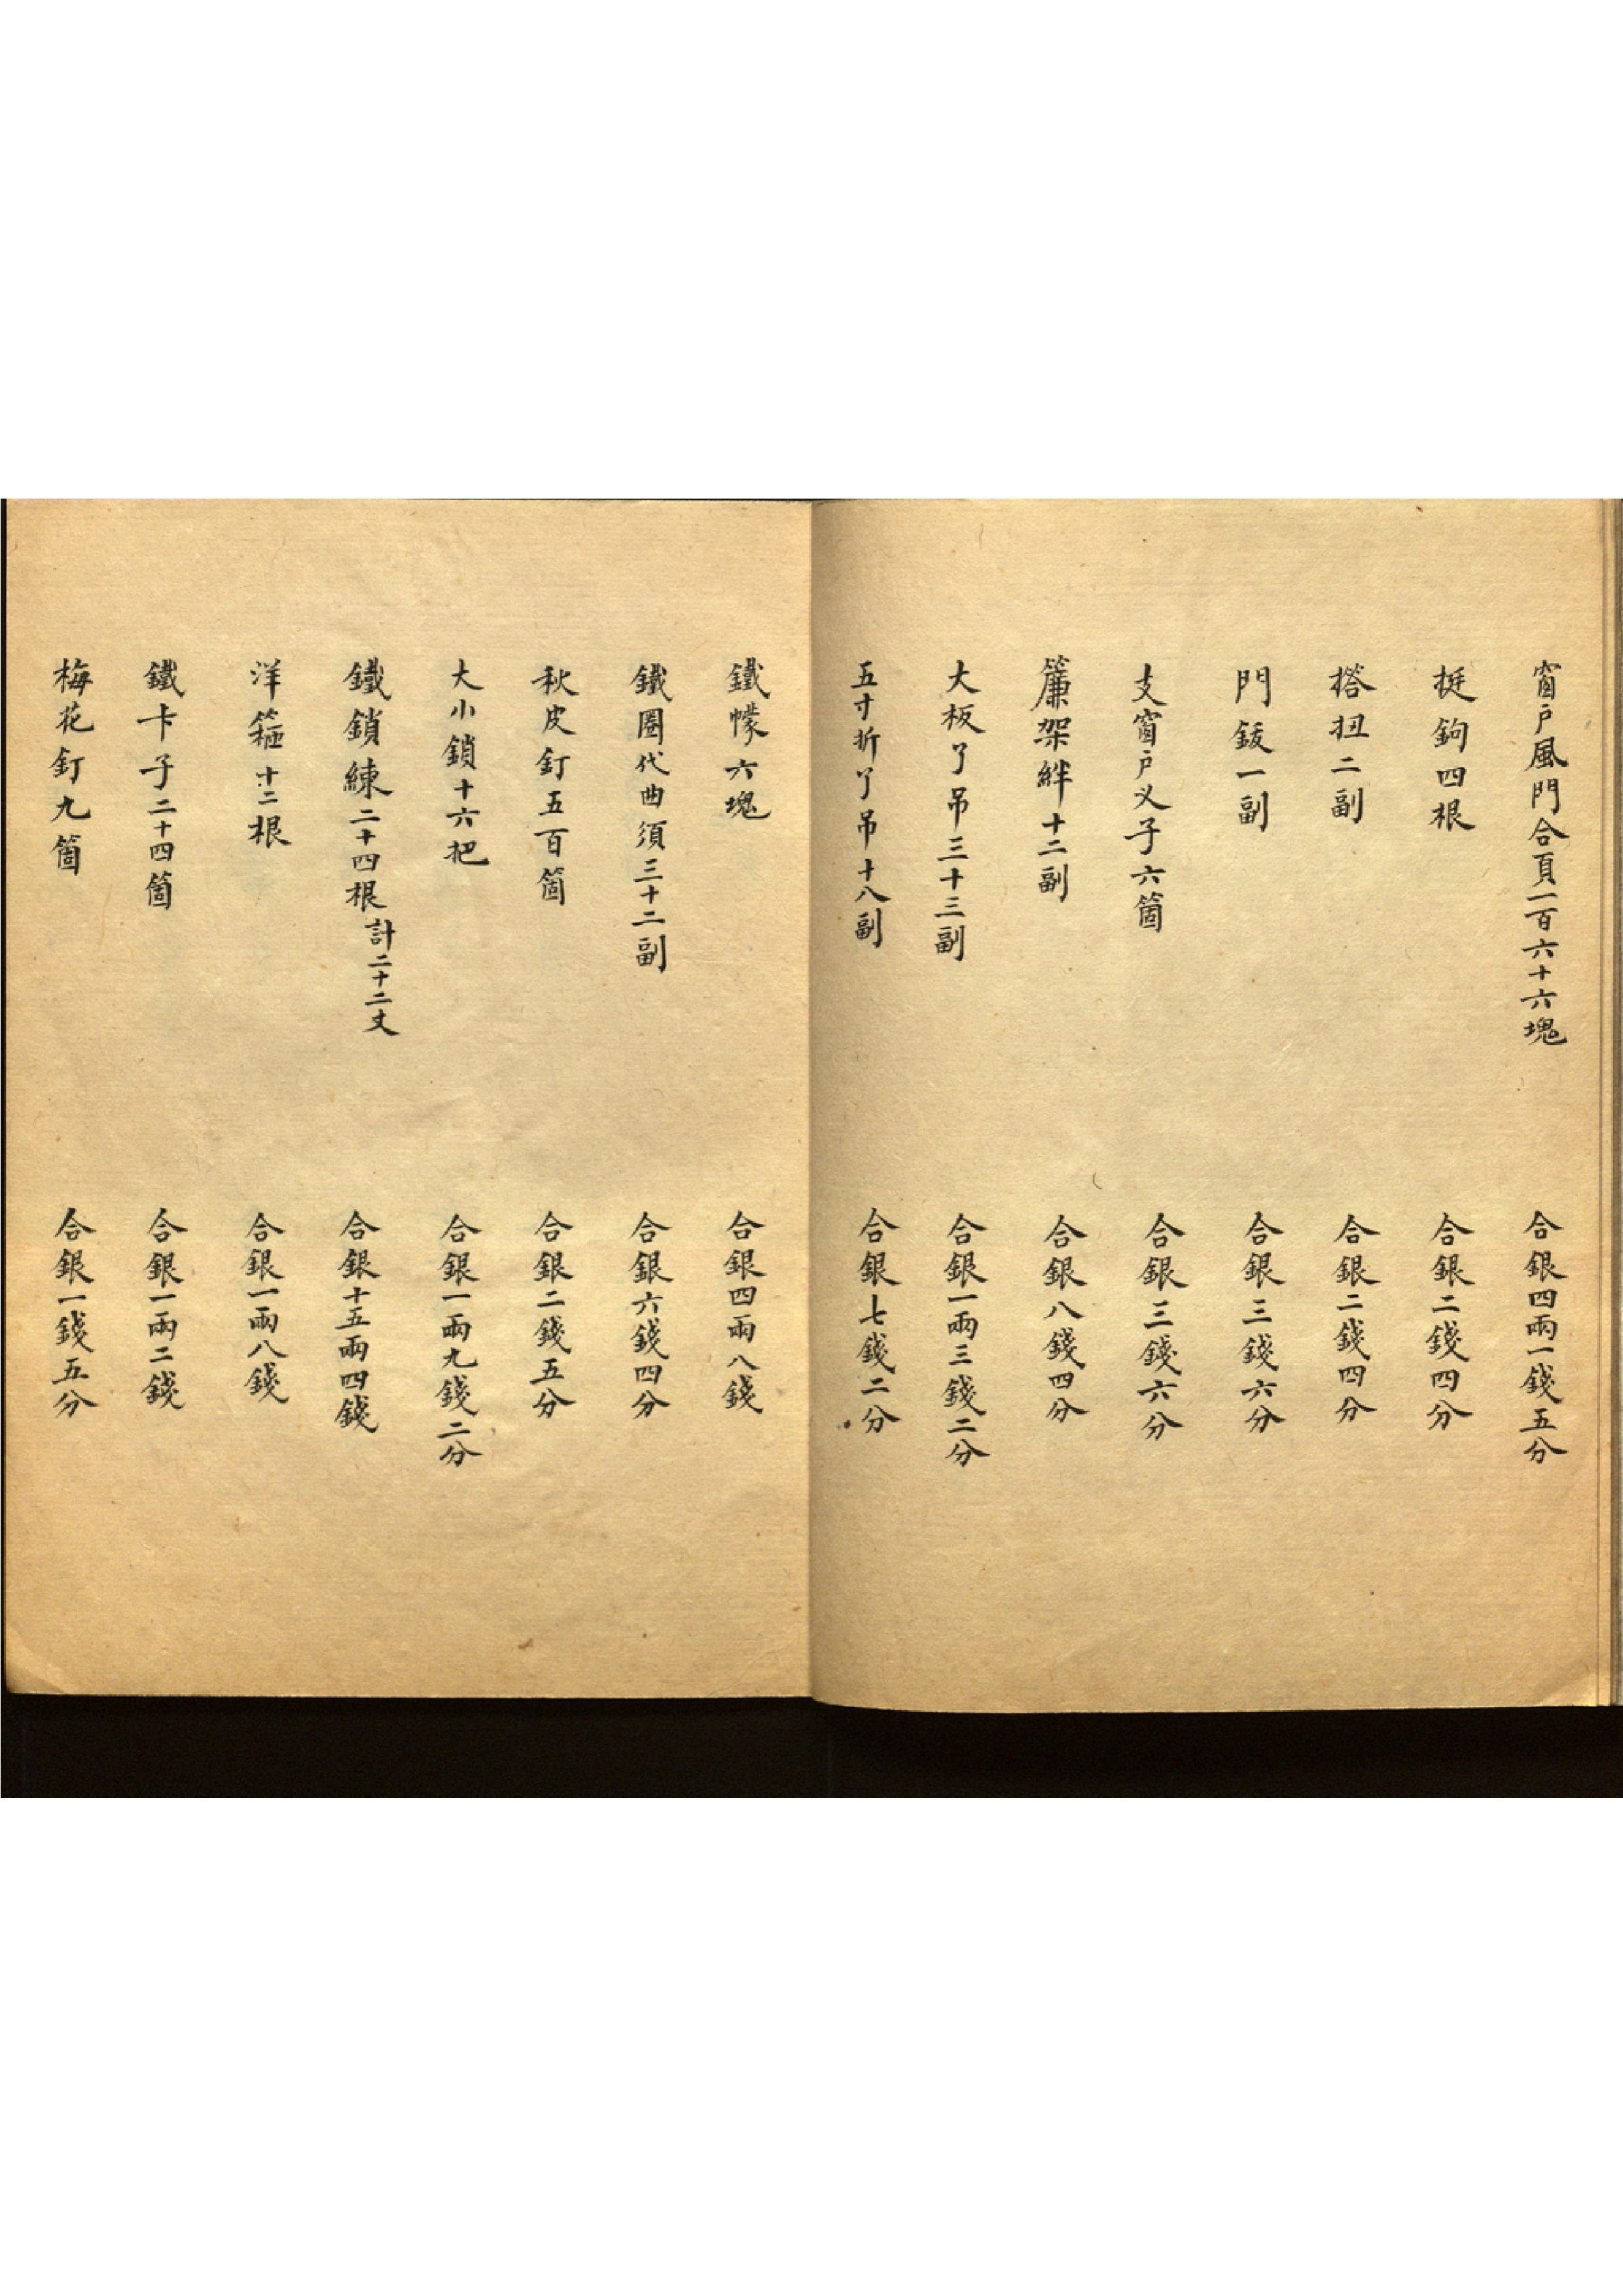 窗戶風門合頁一百六十六塊 合銀四兩一錢五分
挺鉤四根 合銀二錢四分
搭扭二副 合銀二錢四分
門鈸一副 合銀三錢六分
支窗戶义子六箇 合銀三錢六分
簾架絆十二副 合銀八錢四分
大板了吊三十三副 合銀一兩三錢二分
五寸折了吊十八副 合銀七錢二分
鐵幪六塊 合銀四兩八錢
鐵圈代曲須三十二副 合銀六錢四分
秋皮釘五百箇 合銀二錢五分
大小鎖十六把 合銀一兩九錢二分
鐵鎖練二十四根計二十二丈 合銀十五兩四錢
洋箍十二根 合銀一兩八錢
鐵卡子二十四箇 合銀一兩二錢
梅花釘九箇 合銀一錢五分